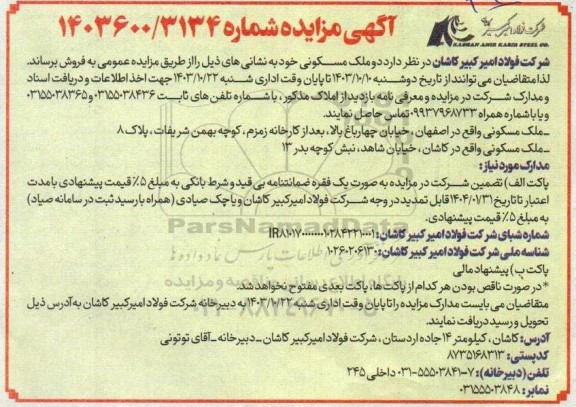 آگهی مزایده شماره ۱۴۰۳۶۰۰/۳۱۳۴
شرکت فولاد امیرکبیر کاشان
KASHAN AMIR KABIR STEEL CO.
شرکت فولاد امیر کبیر کاشان در نظر دارد دو ملک مسکونی خود به نشانی های ذیل را از طریق مزایده عمومی به فروش برساند.
لذا متقاضیان می توانند از تاریخ دوشنبه ۱۴۰۳/۱۰/۱۰ تا پایان وقت اداری شنبه ۱۴۰۳/۱۰/۲۲ جهت اخذ اطلاعات و دریافت اسناد
و مدارک شرکت در مزایده و معرفی نامه بازدید از املاک مذکور ، با شماره تلفن های ثابت ۰۳۱۵۵۰۳۸۴۳۶ و ۰۳۱۵۵۰۳۸۳۶۵
و یا با شماره همراه ۰۹۹۳۷۹۶۸۷۳۳ تماس حاصل نمایند.
ـ ملک مسکونی واقع در اصفهان ، خیابان چهارباغ بالا، بعد از کارخانه زمزم، کوچه بهمن شریفات ، پلاک ۸
ـ ملک مسکونی واقع در کاشان ، خیابان شاهد، نبش کوچه بدر ۱۳
مدارک مورد نیاز :
پاکت الف) تضمین شرکت در مزایده به صورت یک فقره ضمانتنامه بی قید و شرط بانکی به مبلغ ۵٪ قیمت پیشنهادی با مدت
اعتبار تا تاریخ ۱۴۰۴/۰۱/۳۱ قابل تمدید در وجه شرکت فولاد امیر کبیر کاشان و یا چک صیادی (همراه با رسید ثبت در سامانه صیاد)
به مبلغ ۵٪ قیمت پیشنهادی.
شماره شبای شرکت فولاد امیر کبیر کاشان:
شناسه ملی شرکت فولاد امیر کبیر کاشان: ۱۰۲۶۰۲۰۶۱۳۰
پاکت ب) پیشنهاد مالی
*در صورت ناقص بودن هر کدام از پاکت ها، پاکت بعدی مفتوح نخواهد شد.
متقاضیان می بایست مدارک مزایده را تا پایان وقت اداری شنبه ۱۴۰۳/۱۰/۲۲ به دبیرخانه شرکت فولاد امیر کبیر کاشان به آدرس ذیل
تحویل و رسید دریافت نمایند.
آدرس: کاشان ، کیلومتر ۱۴ جاده اردستان ، شرکت فولاد امیر کبیر کاشان ـ دبیرخانه ـ آقای توتونی
کدپستی: ۸۷۳۵۱۶۸۳۱۳
تلفن (دبیرخانه): ۷-۵۵۵۰۳۸۴۱-۰۳۱ داخلی ۲۴۵
نمابر : ۰۳۱۵۵۵۰۳۸۴۸
ParsNamadData